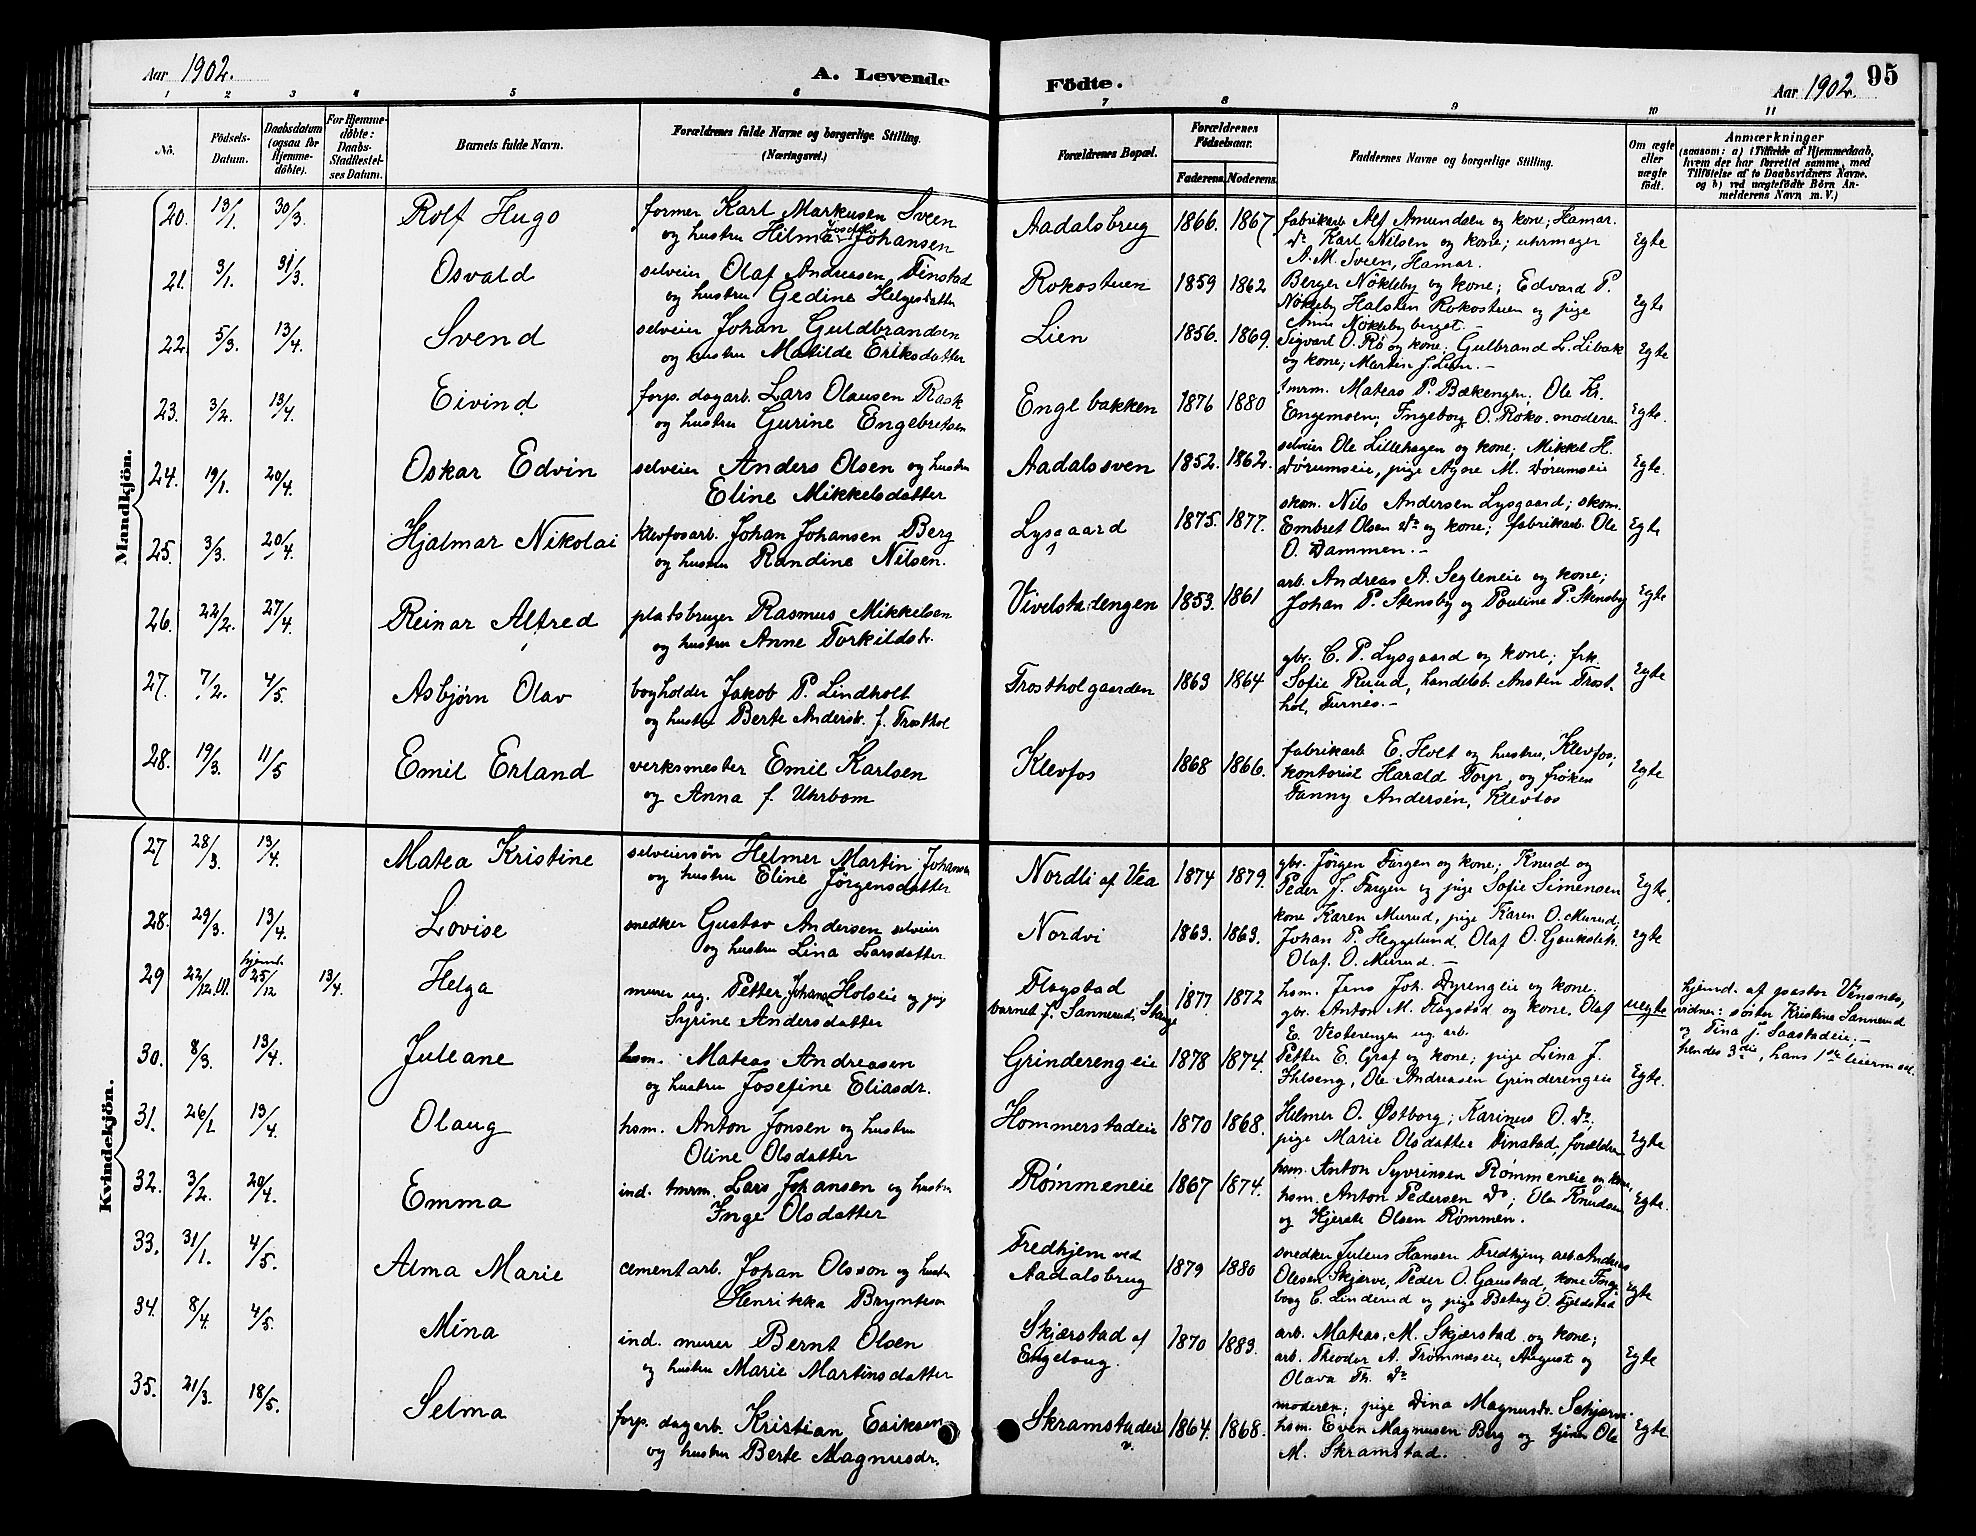 Aar 1902.
A. Levende
Födte.
Aar 1902.
95
1 2 3 4 5 6 7 8 9 10 11
No.
Födsels-Datum.
Daabsdatum (ogsaa för Hjemme-döbte).
For Hjemme-döbte: Daabs-Stadfæstel-ses Datum.
Barnets fulde Navn.
Forældrenes fulde Navne og borgerlige Stilling.
(Næringsvei.)
Forældrenes Bopæl.
Forældrenes Födselsaar.
Faderens. Moderens.
Faddernes Navne og borgerlige Stilling.
Om ægte eller uægte födt.
Anmærkninger
(saasom: a) i Tilfælde af Hjemmedaab,
hvem der har forrettet samme, med
Tilföielse af to Daabsvidners Navne,
og b) ved uægtefödte Börn An-
melderens Navn m. V.)
Mandkjön.
20. 13/1. 30/3. Rolf Hugo former Karl Markusen Sveen
og hustru Hilma Johansen Aadalsbrug 1866. 1867 fabrikarb. Alf Amundsen og kone; Hamar.
do Karl Nilsen og kone; uhrmager
A. M. Sveen, Hamar. Egte
21. 3/1. 31/3. Osvald selveier Olaf Andreasen Finstad
og hustru Gedine Helgesdatter Rokostuen 1859 1862 Berger Nökleby og kone; Edvard P.
Nökleby Halsten Rokostuen og pige
Anne Nöklebyberget. – Egte
22. 5/3. 13/4. Svend selveier Johan Guldbrandsen
og hustru Matilde Eriksdatter Lien 1856. 1869. Sigvart O. Rö og kone. Gulbrand L. Libak
og kone; Martin J. Lien. – Egte
23. 3/2. 13/4. Eivind forp. dagarb. Lars Olausen Rask
og hustru Gurine Engebretsen Englbakken 1876 1880 tmrm. Mateas P. Bækengen; Ole Kr.
Engemoen; Ingeborg O. Roko. moderen Egte.
24. 19/1. 20/4. Oskar Edvin selveier Anders Olsen og hustru
Eline Mikkelsdatter Aadalssven 1852. 1862. selveier Ole Lillehagen og kone; Mikkel H.
Dørumseie, pige Agne M. Dørumseie Egte.
25. 3/3. 20/4. Hjalmar Nikolai klevfosarb. Johan Johansen Berg
og hustru Randine Nilsen. Lysgaard 1875. 1877. skom. Nils Andersen Lysgaard; skom.
Embret Olsen do og kone; fabrikarb. Ole
O. Dammen. – Egte
26. 22/2. 27/4. Reinar Alfred pladsbruger Rasmus Mikkelsen
og hustru Anne Torkildsdr. Vivelstadengen 1853. 1861 arb. Andreas A. Segleneie og kone;
Johan P. Stensby og Pouline P. Stensby Egte
27. 7/2. 4/5. Asbjørn Olav bogholder Jakob P. Lindholt
og hustru Berte Andersdr. f. Trosthol Trostholgaarden 1863 1864 gbr. C. P. Lysgaard og kone; frk.
Sofie Ruud, handelsb. Ansten Trost-
hol, Furnes. – Egte
28. 19/3. 11/5 Emil Erland verksmester Emil Karlsen
og Anna f. Uhrbom Klevfos 1868 1866. fabrikarb E. Holt og hustru, Klevfos;
kontorist Harald Torp, og frøken
Fanny Andersén, Klevfos Egte
Kvindekjön.
27 28/3. 13/4. Matea Kristine selveiersøn Helmer Martin Johansen
og hustru Eline Jörgensdatter Nordli af Vea 1874 1879. gbr. Jörgen Fargen og kone; Knud og
Peder J. Fargen og pige Sofie Simensen Egte.
28. 29/3. 13/4. Lovise snedker Gustav Andersen selveier
og hustru Lina Larsdatter Nordvi 1863. 1863. kone Karen Murud, pige Karen O. Murud,
Johan P. Heggelund, Olaf O. Gaukstih.
Olaf. O. Murud. – Egte
29 22/12.01. hjemd. 25/12 13/4. Helga murer ug. Petter Johans. Holseie og pige
Syrine Andersdatter Flagstad
barnet f. Sannerud, Stange 1877. 1872 hsm. Jens Joh. Dyrengeie og kone.
gbr. Anton M. Flagstad og kone, Olaf
E. Vesterengen ug. arb. uegte hjemd. af pastor Vinsnes,
vidner: søster Kristine Sannerud
og Tina J. Saastadeie. –
hendes 3die, hans 1ste leiermaal.
30. 8/3. 13/4. Juleane hsm. Mateas Andreasen
og hustru Josefine Eliasdr. Grinderengeie 1878 1874. Petter E. Graf og kone; pige Lina J.
Ihlseng, Ole Andreasen Grinderengeie Egte.
31. 26/1 13/4. Olaug hsm. Anton Jonsen og hustru
Oline Olsdatter Hommerstadeie 1870 1868. Helmer O. Østborg; Karinus O. do;
pige Marie Olsdatter Finstad, forældrene Egte
32. 3/2. 20/4. Emma ind. tmrm. Lars Johansen og hustru
Inge Olsdatter Rømmeneie 1867 1874. hsm. Anton Syvrinsen Rømmeneie og kone,
hsm. Anton Pedersen do; Ole Knudsen
og Kjerste Olsen Rømmen. Egte.
33. 31/1. 4/5. Alma Marie cementarb. Johan Olsson og hustru
Henrikka Bryntesen Fredhjem ved
Aadalsbrug 1879 1880 snedker Juleus Hansen Fredhjem, arb. Andreas
Olesen Skjerve, Peder O. Gaustad, kone Inge-
borg C. Linderud og pige Betzy O. Fjeldstad Egte
34. 8/4. 4/5. Mina ind. murer Bernt Olsen
og hustru Marie Martinsdatter Skjærstad af
Engelaug. 1870 1883. arb. Mateas. M. Skjærstad og kone;
arb. Theodor A. Trømnæseie, August og
Olava Th. do Egte
35. 21/3. 18/5. Selma forp. dagarb. Kristian Eriksen
og hustru Berte Magnusdr. Skramstadeie
v. 1864. 1868. moderen; pige Dina Magnusdr. Schjerve
hsm. Even Magnusen Berg og tjener Ole
M. Skramstad. Egte